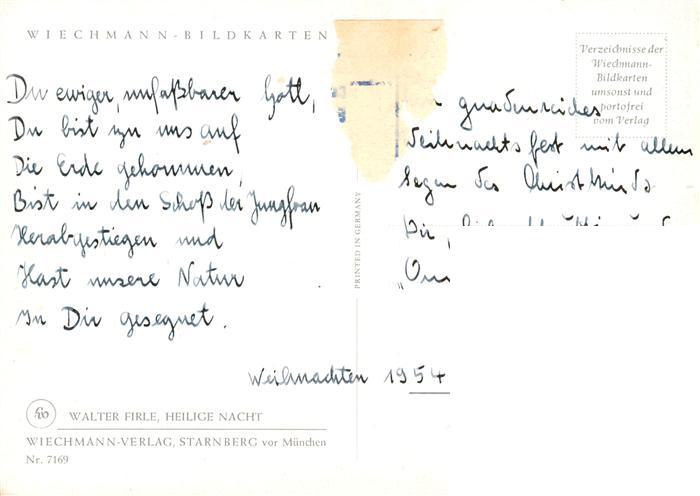 WIECHMANN-BILDKARTEN
Du ewiger, unfaßbarer Gott,
Du bist zu uns auf
Die Erde gekommen,
Bist in den Schoß der Jungfrau
Herabgestiegen und
Hast unsere Natur
In Dir gesegnet.
gnadenreiches
Weihnachtsfest mit allem
Segen des Christkinds
Dir,
Weihnachten 1954
Verzeichnisse der
Wiechmann-
Bildkarten
umsonst und
portofrei
vom Verlag
PRINTED IN GERMANY
WALTER FIRLE, HEILIGE NACHT
WIECHMANN-VERLAG, STARNBERG vor München
Nr. 7169